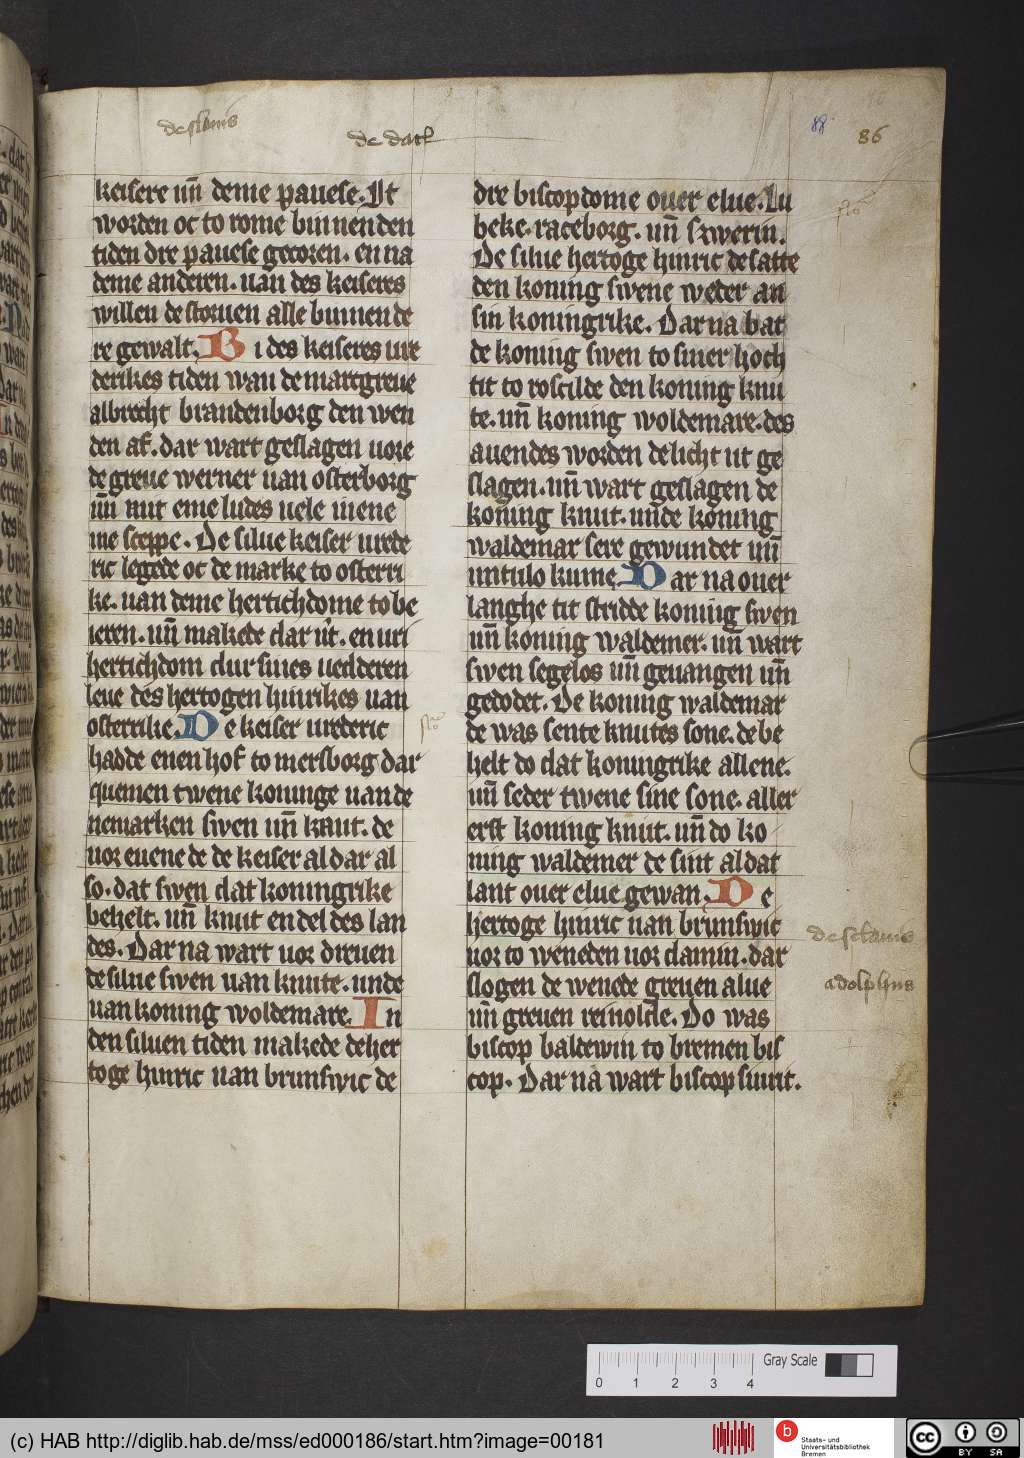 de slauis
de dac
88
86
keisere un̄ deme pauese. It
worden oc to rome binnen den
tiden dre pauese gecoren. en na
deme anderen. uan des keiseres
willen de storuen alle binnen de
re gewalt. Bi des keiseres vre
derikes tiden wan de marcgreue
albrecht brandenborg den wen
den af. dar wart geslagen uore
de greue werner uan osterborg
un̄ mit eme ludes uele in ene
me steppe. De silue keiser vrede
ric legede oc de marke to osterri
ke. uan deme hertichdome to be
ieren. un̄ makede dar ut. en uri
hertichdom dur sines uedderen
leue des hertogen hinrikes uan
osterrike. De keiser vrederic
hadde enen hof to mersborg dar
quemen twene koninge uan de
nemarken swen un̄ knut. de
uor euene de de keiser al dar al
so. dat swen dat koningrike
behelt. un̄ knut en del des lan
des. Dar na wart uor dreuen
de silue swen uan knute. unde
uan koning woldemare. In
den siluen tiden makede de her
toge hinric uan brunswic de
dre biscopdome ouer elue. Lu
beke. raceborg. un̄ szwerin.
De silue hertoge hinric de satte
den koning swene weder an
sin koningrike. Dar na bat
de koning swen to siner hoch
tit to roscilde den koning knu
te. un̄ koning woldemare. des
auendes worden de licht ut ge
slagen. un̄ wart geslagen de
koning knut. unde koning
waldemar sere gewundet un̄
untulo kume. Dar na ouer
langhe tit stridde koning swen
un̄ koning waldemer. un̄ wart
swen segelos un̄ geuangen un̄
gedodet. De koning waldemar
de was sente knutes sone. de be
helt do dat koningrike allene.
un̄ seder twene sine sone. aller
erst koning knut. un̄ do ko
ning waldemer de sint al dat
lant ouer elue gewan. De
hertoge hinric uan brunswic
uor to weneden uor damin. dar
slogen de wenede greuen alue
un̄ greuen reinolde. Do was
biscop baldewin to bremen bis
cop. Dar na wart biscop siurit.
de sclauis
adolphus
Gray Scale
0 1 2 3 4
(c) HAB http://diglib.hab.de/mss/ed000186/start.htm?image=00181
b
Staats- und
Universitätsbibliothek
Bremen
cc
BY SA